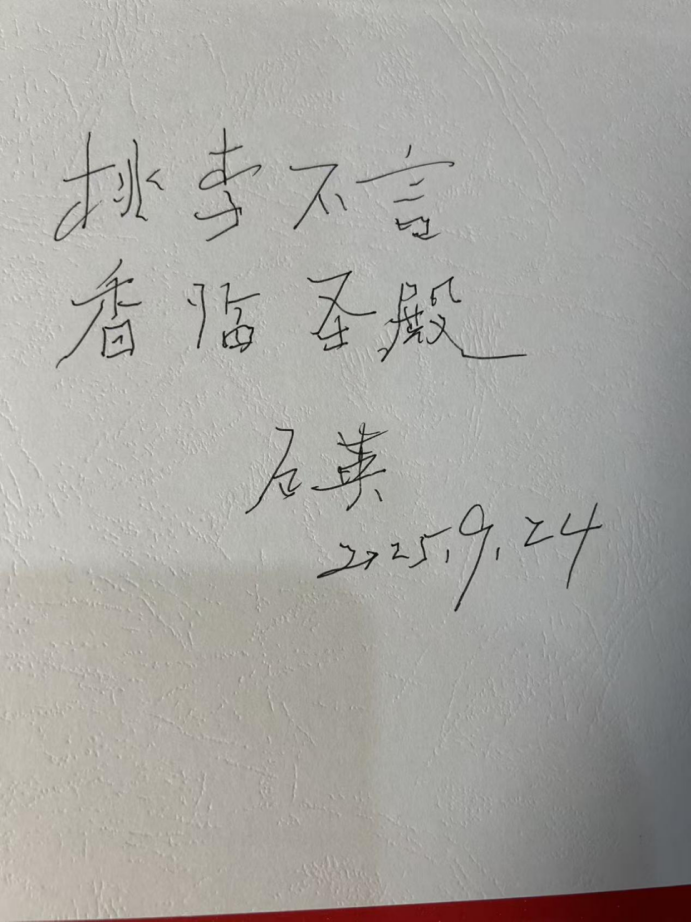 桃李不言
香临圣殿
石英
2025.9.24